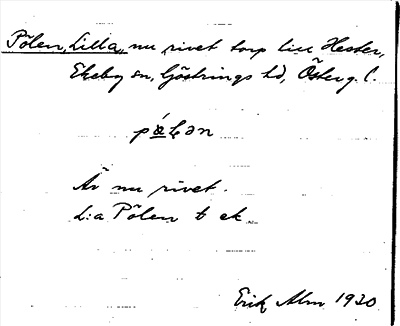 Pölen, Lilla, nu rivet torp till Hester,
Ekeby sn, Göstrings hd, Österg. l.
Är nu rivet.
L:a Pölen t ek
Erik Alm 1930